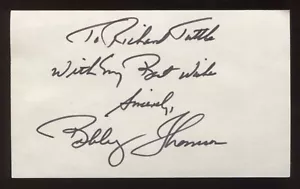 To Richard Tuttle
With My Best Wishes
Sincerely,
Bobby Thomson